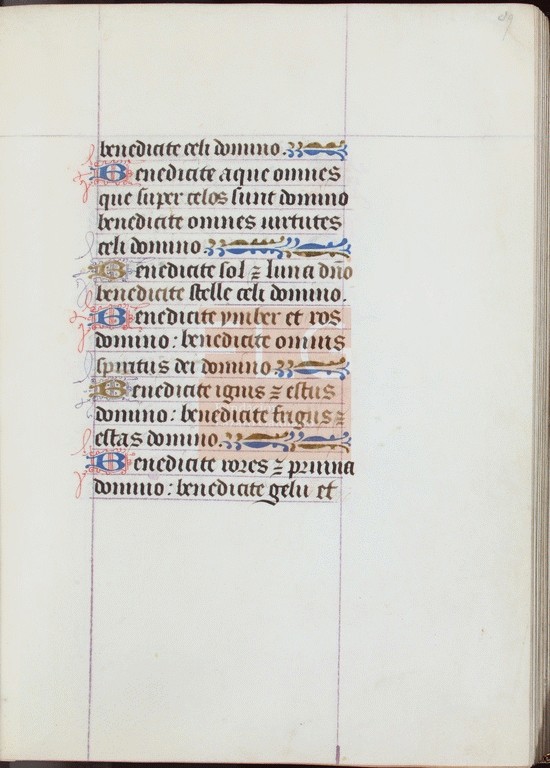 benedicite celi domino.
Benedicite aque omnes
que super celos sunt domino
benedicite omnes uirtutes
celi domino.
Benedicite sol ⁊ luna dn̄o
benedicite stelle celi domino.
Benedicite ymber et ros
domino: benedicite omnis
spiritus dei domino
Benedicite ignis ⁊ estus
domino: benedicite frigus ⁊
estas domino.
Benedicite rores ⁊ pruina
domino: benedicite gelu et